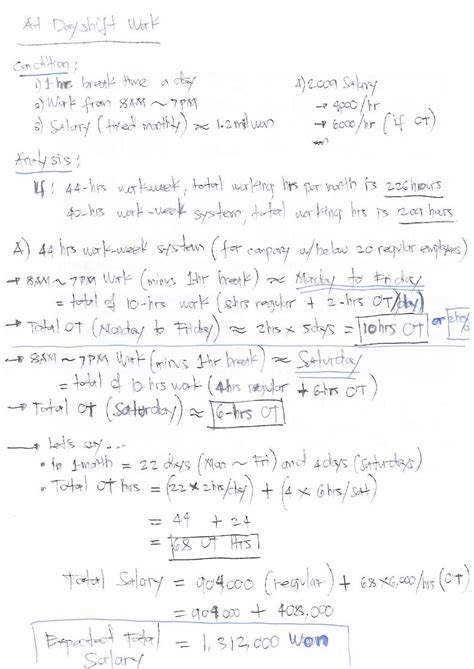 At Dayshift Work
Condition:
1) 1 hr break time a day
2) Work from 8AM ~ 7PM
3) Salary (fixed monthly) ≈ 1.2 mil won
4) 2009 Salary
→ 4,000/hr
→ 6000/hr (if OT)
Analysis:
If: 44-hrs work-week, total working hrs per month is 226 hours
40-hrs work-week system, total working hrs is 209 hours.
A) 44 hrs work-week system (for company w/below 20 regular employees)
→ 8AM ~ 7PM Work (minus 1hr break) ≈ Monday to Friday
= total of 10-hrs work (8hrs regular + 2-hrs OT/day)
→ Total OT (Monday to Friday) ≈ 2hrs x 5days = 10hrs OT or
→ 8AM ~ 7PM Work (minus 1hr break) ≈ Saturday
= total of 10-hrs work (4hrs regular + 6-hrs OT)
→ Total OT (Saturday) ≈ 6-hrs OT
→ Let's say ...
• in 1-month = 22 days (Mon ~ Fri) and 4 days (Saturdays)
• Total OT hrs = (22 x 2hrs/day) + (4 x 6hrs/Sat)
= 44 + 24
= 68 OT Hrs
Total Salary = 904000 (regular) + 68 x 6,000/hrs (OT)
= 904000 + 408,000
Expected Total Salary = 1,312,000 Won